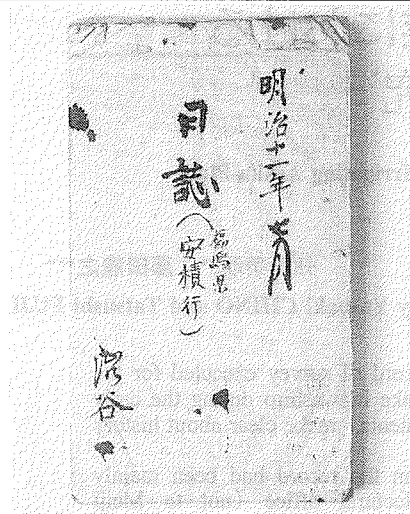 明治十一年七月
日誌
福島県
(安積行)